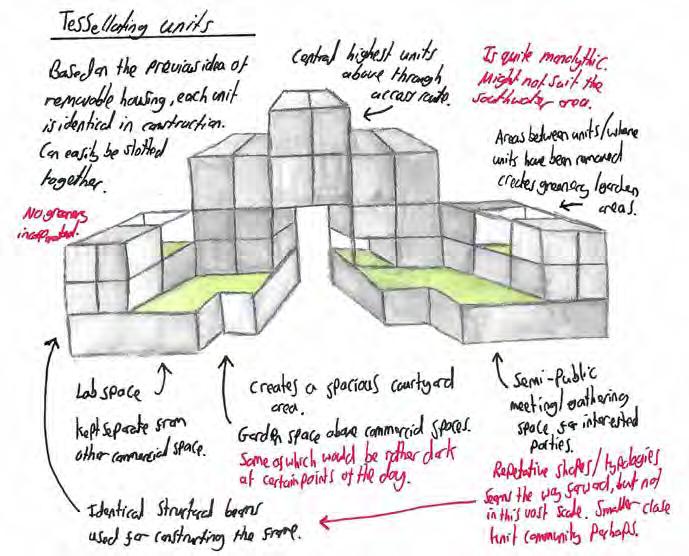 Tessellating units
Based on the previous idea of
removable housing, each unit
is identical in construction.
Can easily be slotted
together.
No greenery
incorporated.
Central highest units
above through
access route.
Is quite monolythic.
Might not suit the
southwater area.
Areas between units/where
units have been removed
creates greenery/garden
areas.
Lab space
Kept separate from
other commercial space.
Creates a spacious courtyard
area.
Garden space above commercial spaces.
Some of which would be rather dark
at certain points of the day.
Semi-Public
meeting/gathering
space for interested
parties.
Repetative shapes/typologies
seems the way forward, but not
in this vast scale. Smaller close
knit community perhaps.
Identical structural beams
used for constructing the frame.